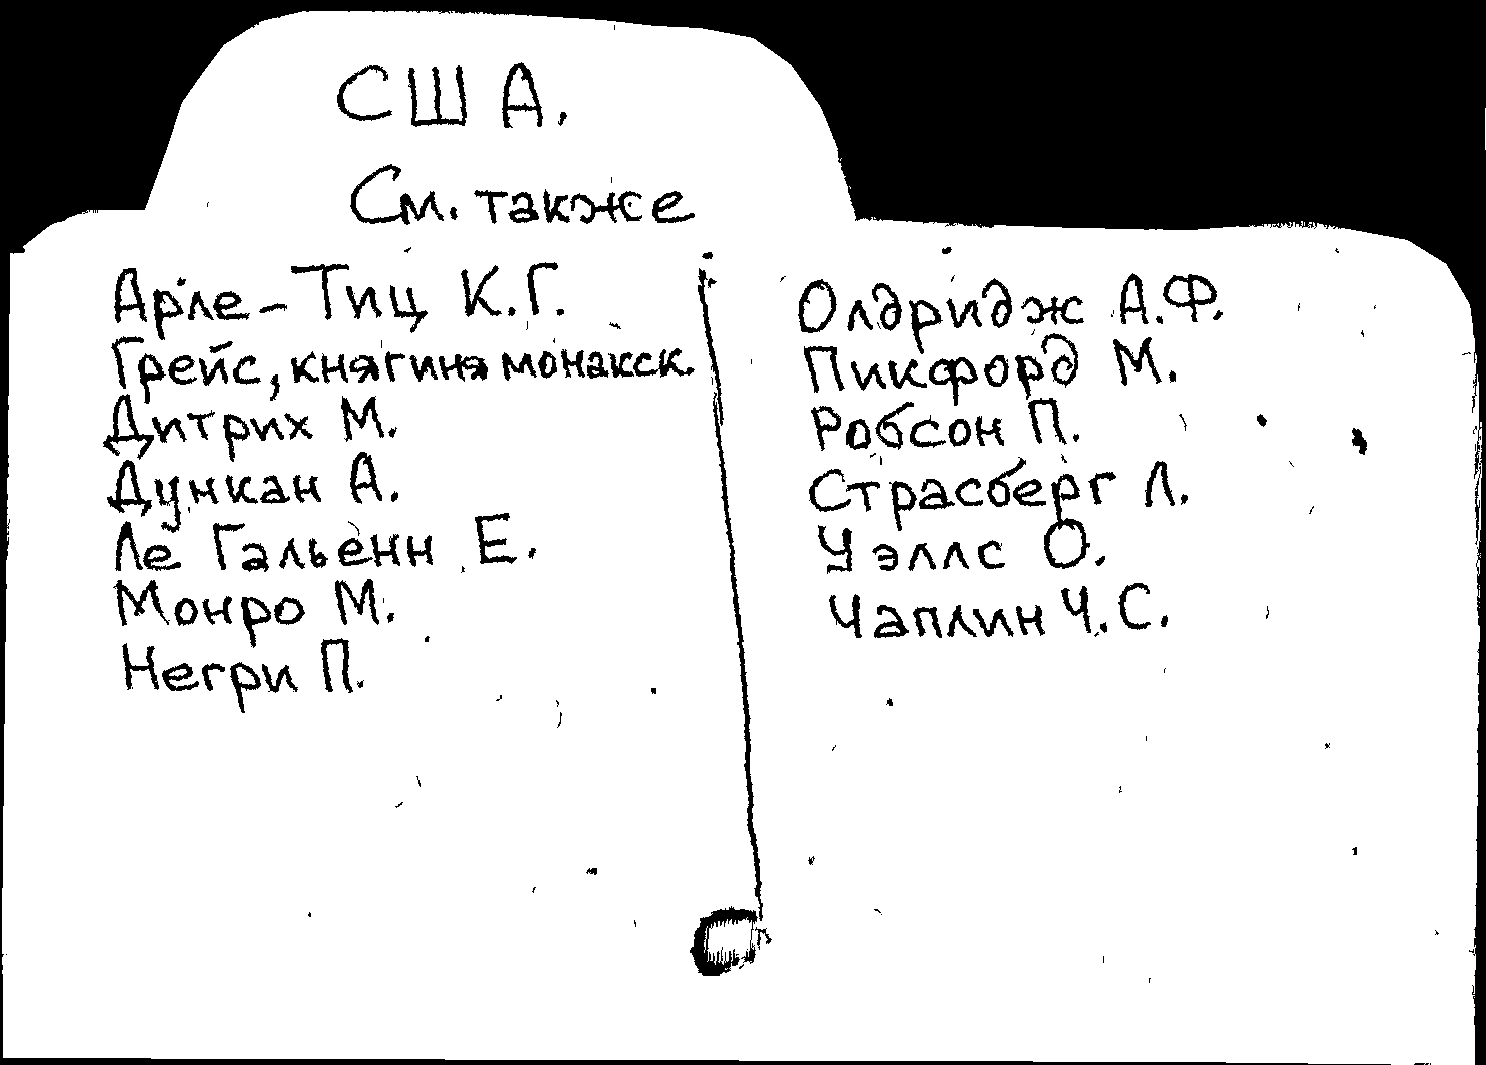 США.
См. также
Арле-Тиц К.Г.
Грейс, княгиня монакск.
Дитрих М.
Дункан А.
Ле Гальенн Е.
Монро М.
Негри П.
Олдридж А.Ф.
Пикфорд М.
Робсон П.
Страсберг Л.
Уэллс О.
Чаплин Ч.С.